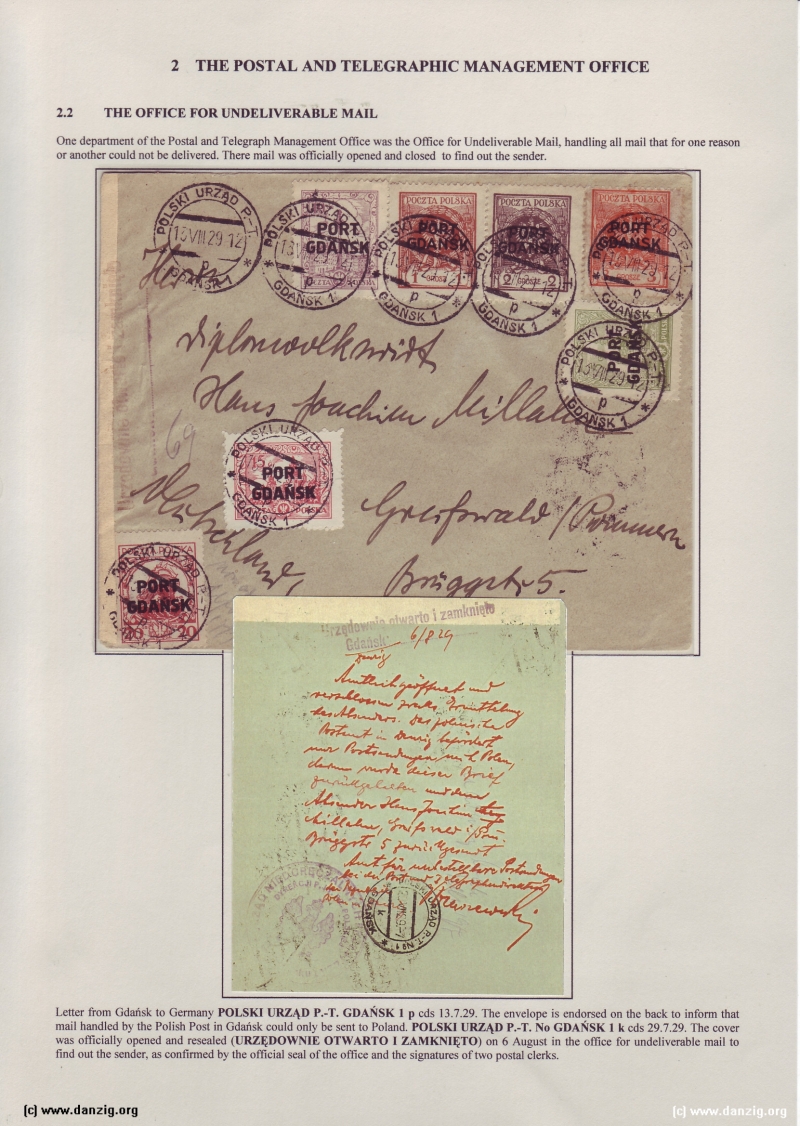 2 THE POSTAL AND TELEGRAPHIC MANAGEMENT OFFICE
2.2 THE OFFICE FOR UNDELIVERABLE MAIL
One department of the Postal and Telegraph Management Office was the Office for Undeliverable Mail, handling all mail that for one reason
or another could not be delivered. There mail was officially opened and closed to find out the sender.
POLSKI URZĄD P.-T.
13 VII 29 12
p
GDAŃSK 1
POCZTA POLSKA
PORT GDAŃSK
POCZTA POLSKA
PORT GDAŃSK
1 GROSZ
POCZTA POLSKA
PORT GDAŃSK
2 GROSZE 2
PORT GDAŃSK
PORT GDAŃSK
POLSKI URZĄD P.-T.
13 VII 29 12
p
GDAŃSK 1
Herrn
Diplomvolkswirt
Hans Joachim Millahn
69
PORT GDAŃSK
Greifswald / Pommern
Brüggstr 5.
PORT GDAŃSK
20
Urzędownie otwarto i zamknięto
Gdańsk 6/8 29
Danzig
Amtlich geöffnet und
verschlossen zwecks Ermittelung
des Absenders. Das polnische
Postamt in Danzig befördert
nur Postsendungen nach Polen,
darum wurde dieser Brief
zurückgehalten und dem
Absender Hans Joachim
Millahn, Greifswald i/Pom
Brüggstr 5 zurückgesandt
Amt für unbestellbare Postsendungen
bei der Post und
der Republik
Polen
Letter from Gdańsk to Germany POLSKI URZĄD P.-T. GDAŃSK 1 p cds 13.7.29. The envelope is endorsed on the back to inform that
mail handled by the Polish Post in Gdańsk could only be sent to Poland. POLSKI URZĄD P.-T. No GDAŃSK 1 k cds 29.7.29. The cover
was officially opened and resealed (URZĘDOWNIE OTWARTO I ZAMKNIĘTO) on 6 August in the office for undeliverable mail to
find out the sender, as confirmed by the official seal of the office and the signatures of two postal clerks.
(c) www.danzig.org
(c) www.danzig.org